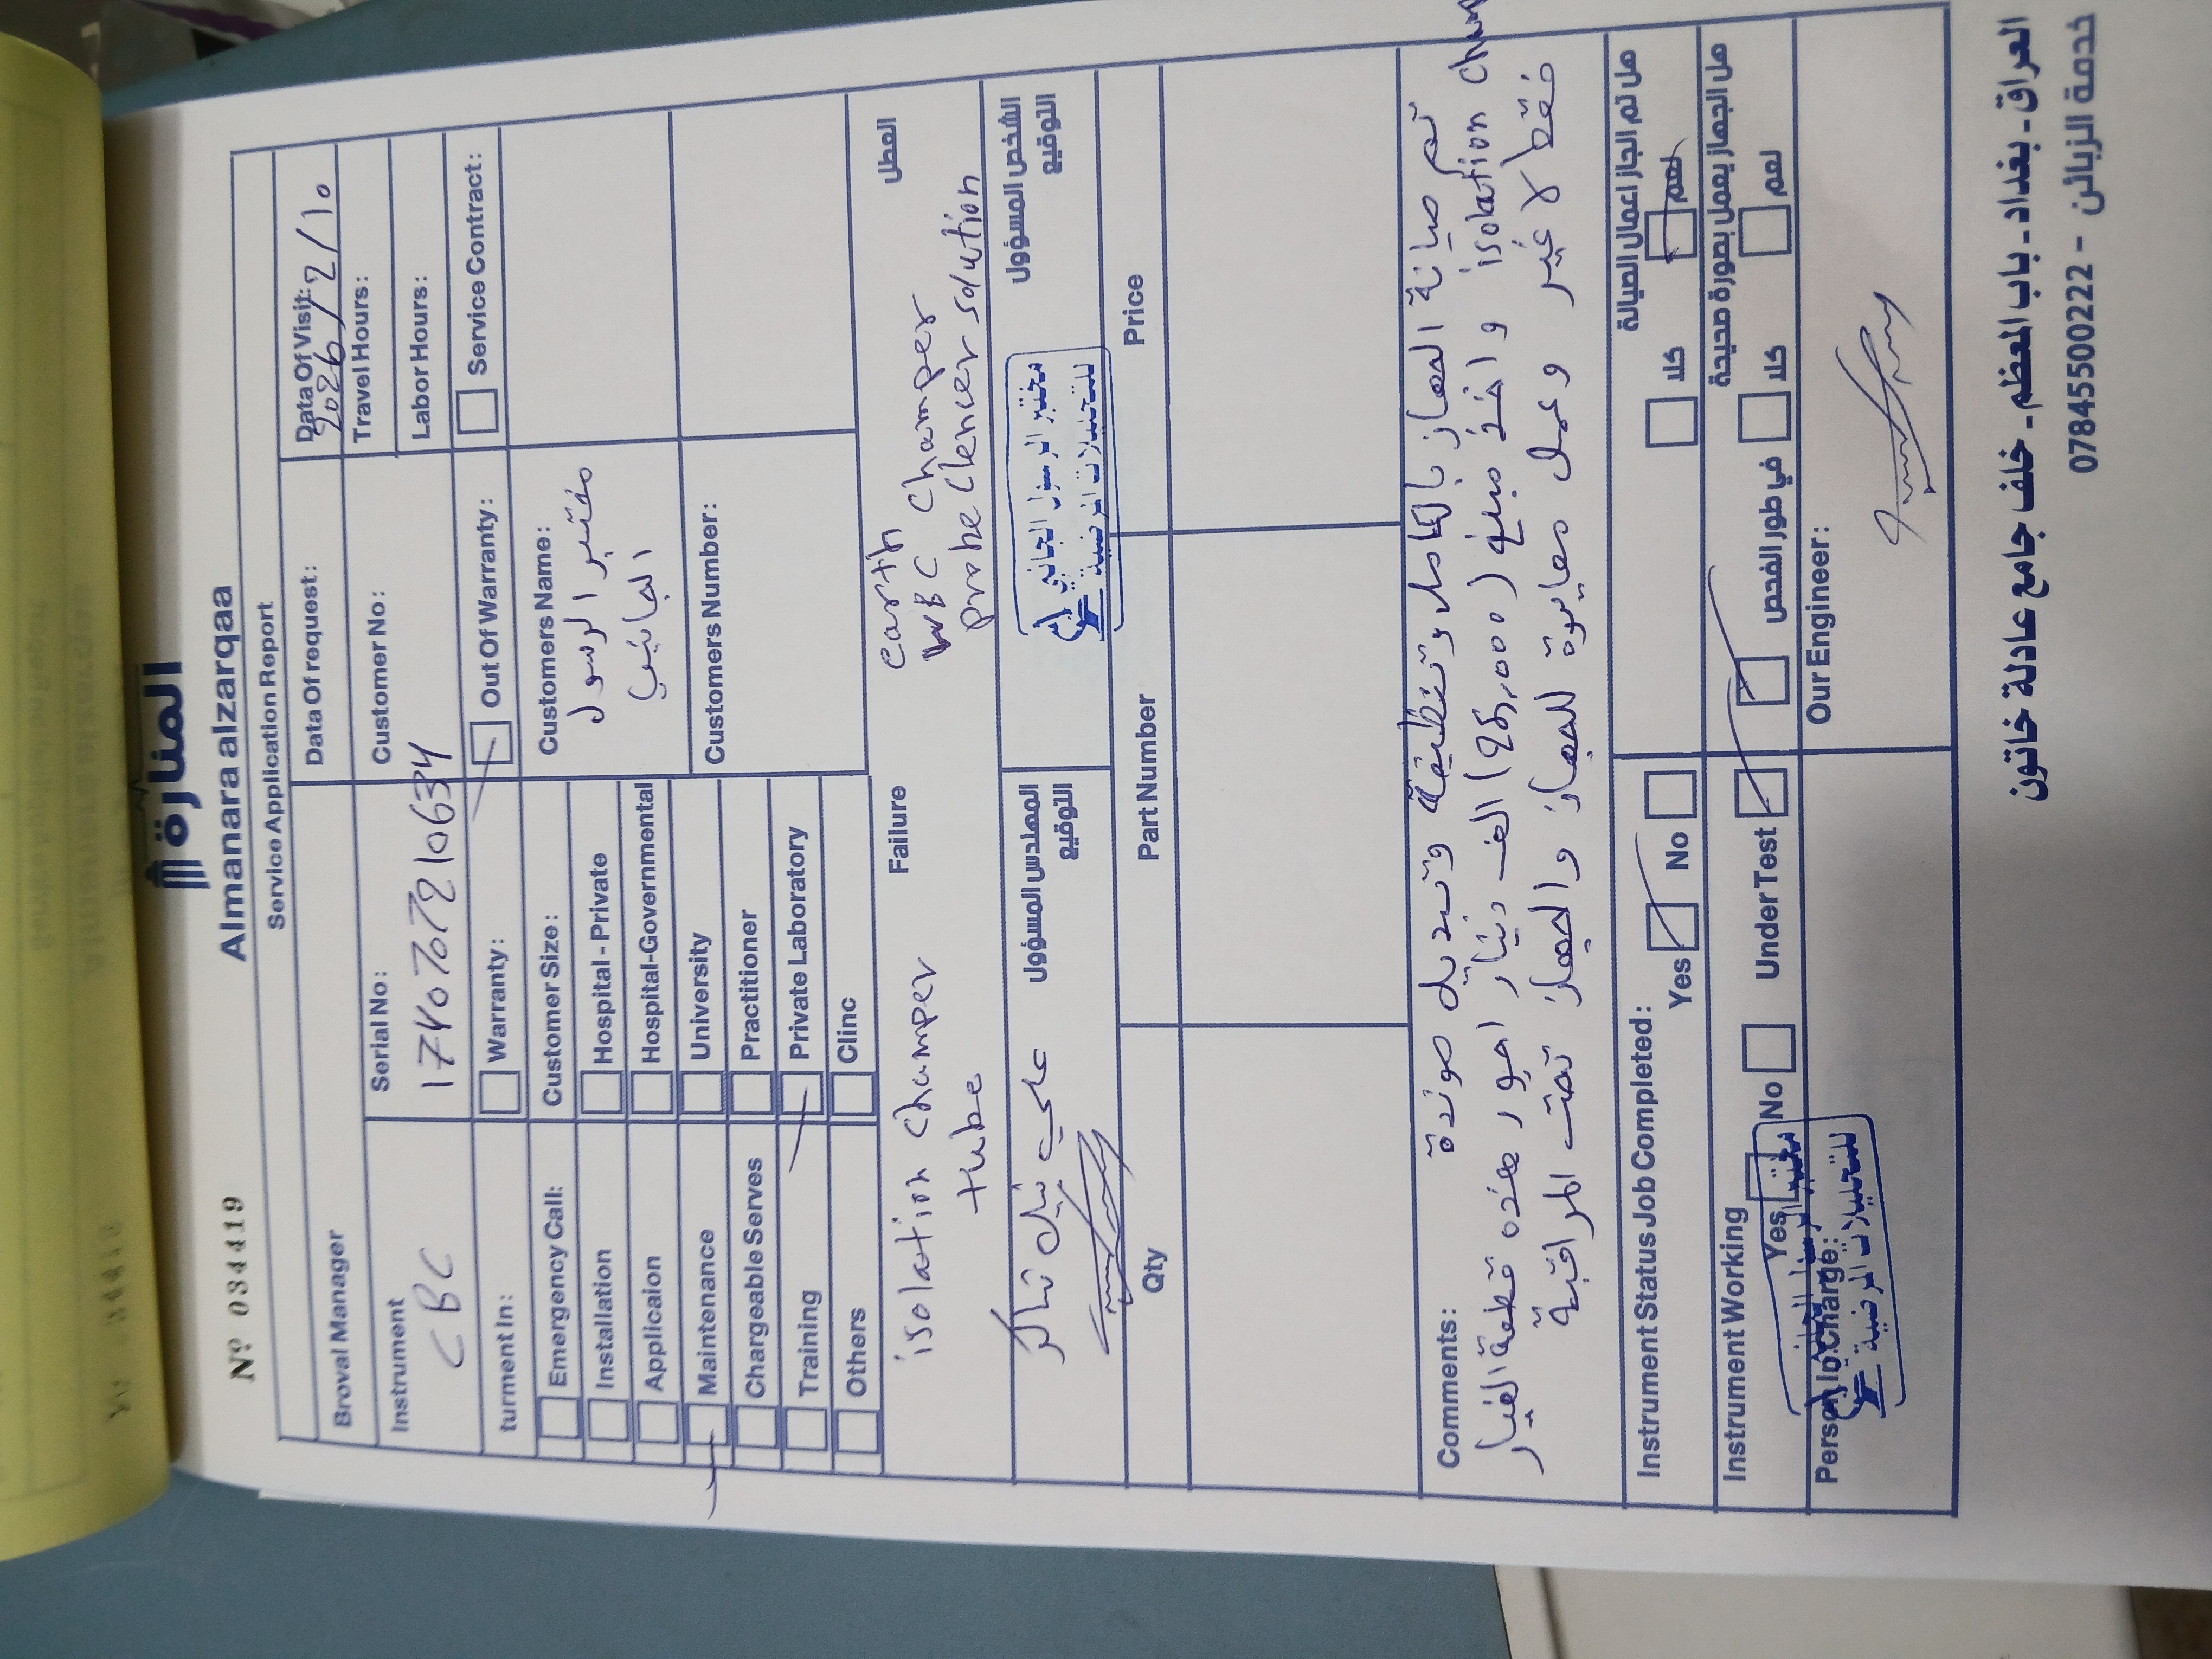 المنارة
Almanara alzarqaa
Nº 034419
Service Application Report
Broval Manager
Data Of request:
Data Of Visit:
2026/2/10
Travel Hours:
Instrument
CBC
Serial No:
1740707210634
Customer No:
Labor Hours:
turment In:
Warranty:
Out Of Warranty:
Service Contract:
Emergency Call:
Customer Size:
Customers Name:
مختبر الرسول
الجانبي
Installation
Hospital - Private
Applicaion
Hospital-Governmental
Maintenance
University
Customers Number:
Chargeable Serves
Practitioner
Training
Private Laboratory
Others
Clinc
Failure
العطل
isolation champer
tube
earth
WBC champer
probe clencer solution
المهندس المسؤول
التوقيع
علي نبيل شاكر
الشخص المسؤول
التوقيع
للتحليلات المرضية
Qty
Part Number
Price
Comments:
تم صيانة الجهاز بالكامل وتنظيفة وتبديل صوندة
isolation cham و اخذ مبلغ (25,000) الف دينار اجور هذه قطعة الغيار
فقط لا غير وعمل معايرة للجهاز والجهاز تحت المراقبة
Instrument Status Job Completed:
Yes
No
هل تم انجاز اعمال الصيانة
كلا
نعم
Instrument Working
Yes
No
Under Test
في طور الفحص
هل الجهاز يعمل بصورة صحيحة
كلا
نعم
Person In Charge:
للتحليلات المرضية
Our Engineer:
العراق - بغداد - باب المعظم - خلف جامع عادلة خاتون
خدمة الزبائن - 07845500222